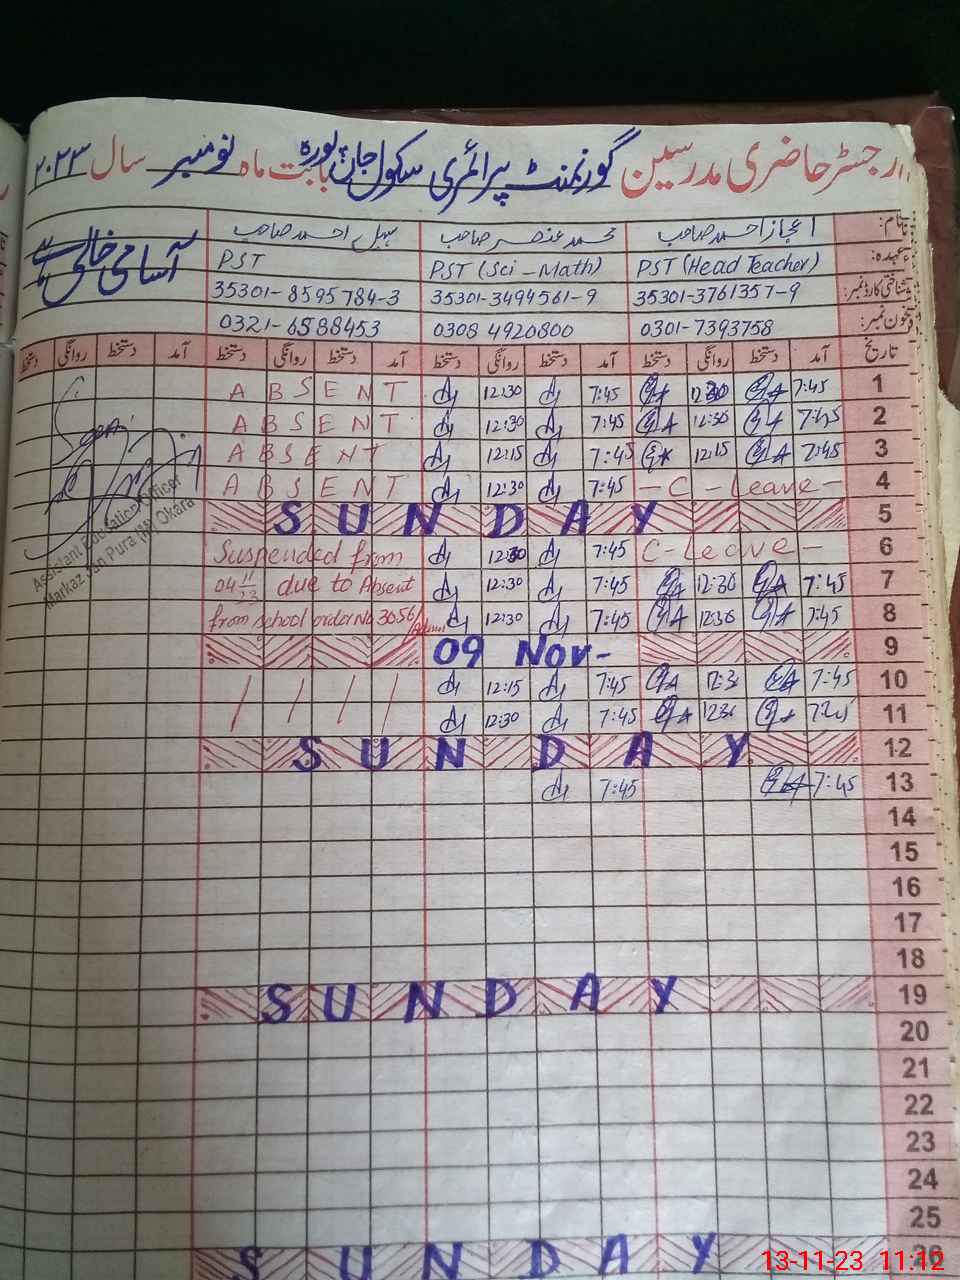 رجسٹر حاضری مدرسین گورنمنٹ پرائمری سکول جان پورہ بابت ماہ نومبر سال ۲۰۲۳
نام: اعجاز احمد صاحب محمد عنصر صاحب احمد صاحب آسامی خالی ہے
عہدہ: PST (Head Teacher) PST (Sci-Math) PST
شناختی کارڈ نمبر: 35301-3761357-9 35301-3494561-9 35301-8595784-3
فون نمبر: 0301-7393758 0308 4920800 0321-6588453
تاریخ آمد دستخط روانگی دستخط آمد دستخط روانگی دستخط آمد دستخط روانگی دستخط آمد دستخط روانگی دستخط
ABSENT 12:30 7:45 12:30 7:45 1
ABSENT 12:30 7:45 12:30 7:45 2
ABSENT 12:15 7:45 12:15 7:45 3
ABSENT 12:30 7:45 -C-Leave- 4
SUNDAY 5
Suspended from 12:30 7:45 C-Leave- 6
04 11/23 due to Absent 12:30 7:45 12:30 7:45 7
from school order No 3056/Admn 12:30 7:45 12:30 7:45 8
09 Nov- 9
/ / / / 12:15 7:45 12:3 7:45 10
/ / / / 12:30 7:45 12:30 7:45 11
SUNDAY 12
7:45 7:45 13
14
15
16
17
18
SUNDAY 19
20
21
22
23
24
25
SUNDAY 26
Assistant Education Officer
Markaz Jan Pura (M) Okara
13-11-23 11:12